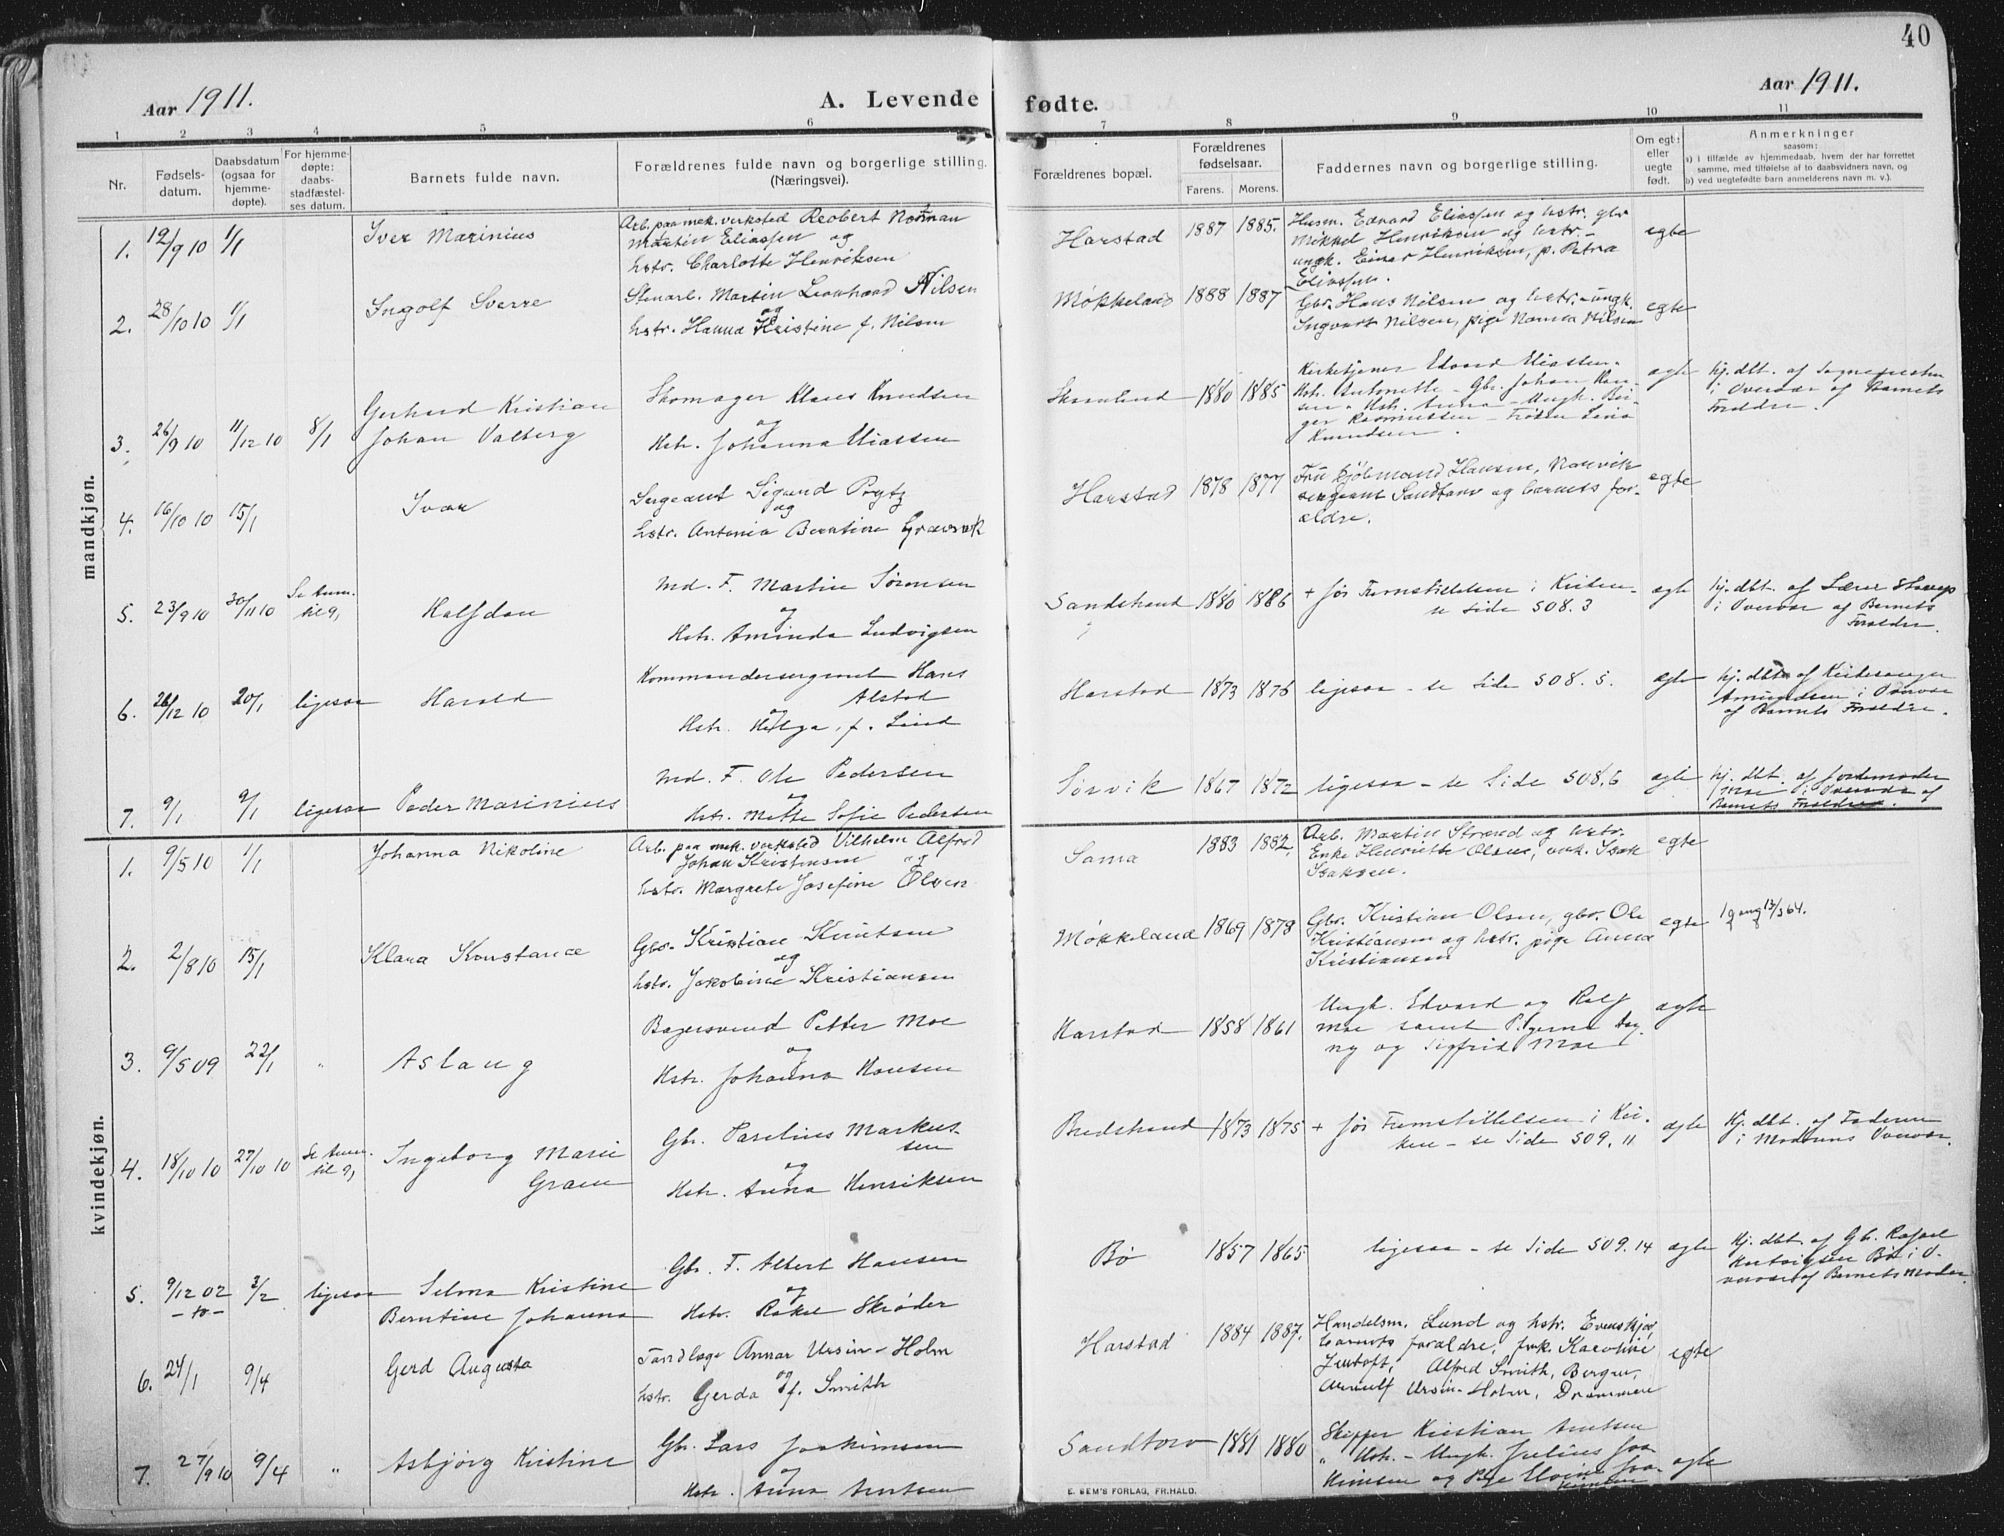 40
Aar 1911.
A. Levende fødte.
Aar 1911.
1 2 3 4 5 6 7 8 9 10 11
Nr.
Fødsels-
datum.
Daabsdatum
(ogsaa for
hjemme-
døpte).
For hjemme-
døpte:
daabs-
stadfæstel-
ses datum.
Barnets fulde navn.
Forældrenes fulde navn og borgerlige stilling.
(Næringsvei).
Forældrenes bopæl.
Forældrenes
fødselsaar.
Farens. Morens.
Faddernes navn og borgerlige stilling.
Om egt:
eller
uegte
født.
Anmerkninger
saasom:
a) i tilfælde av hjemmedaab, hvem der har forrettet
samme, med tilføielse af to daabsvidners navn, og
b) ved uegtefødte barn anmelderens navn m. v.).
mandkjøn.
1. 12/9 10 1/1
Iver Marinius
Arb. paa mek. verksted Reobert Norman
Martin Eliassen og
hstr. Charlotte Henriksen
Harstad 1887 1885.
Husm. Edvard Eliassen og hstr. gbr
Mikkel Henriksen og hstr. -
ungk. Einar Henriksen, p. Petra
Eliassen.
egte
2. 28/10 10 1/1
Ingolf Sverre
Stenarb. Martin Leonhard Nilsen
og
hstr. Hanna Kristine f. Nilsen
Møkkeland 1888 1887
Gbr. Hans Nilsen og hstr. - ungk.
Ingvart Nilsen, pige Nanna Nilsen
egte
3. 26/9 10 11/12 10 8/1
Gerhard Kristian
Johan Valberg
Skomager Klaus Knudsen
og
Hstr. Johanna Eliassen
1880 1885
Kirketjener Edvard Eliassen -
Hstr. Antonette - Gbr. Johan Han-
sen - Hstr. Anna - Ungk. Bir-
ger Rasmussen - Frøken Lina
Knudsen.
egte
hj. dbt. af Sognepresten
i Overvær af Barnets
Foreldre.
4. 16/10 10 15/1
Ivar
Sergeant Sigurd Prytz
og
hstr. Antonia Berntine Græsvik
Harstad 1878 1877
Fru kjøbmand Hansen, Narvik
sergeant Sandtorv og barnets for-
ældre.
egte
5. 23/9 10 30/11 10 Se Anm. til 9,
Halfdan
Md. F. Martin Sørensen
og
Hstr. Aminda Ludvigsen
Sandstrand 1880 1886
+ før Fremstillelsen i Kirken -
se Side 508. 3
egte
hj. dbt. af Lærer
i Overvær af Barnets
Foreldre.
6. 26/12 10 20/1 ligesaa
Harald
Kommandersergeant Hans
Alstad
og
Hstr. Helga, f. Lind
Harstad 1873 1876
ligesaa - se Side 508. 5.
egte
hj. dbt. af Kirkesanger
Amundsen i Overvær
af Barnets Foreldre.
7. 9/1 9/1 ligesaa
Peder Marinius
Md. F. Ole Pedersen
og
Hstr. Mette Sofie Pedersen
Sørvik 1867 1872
ligesaa - se Side 508. 6
egte
hj. dbt. af Jordemoder
Moe i Overvær af
Barnets Foreldre.
kvindekjøn.
1. 9/5 10 1/1
Johanna Nikoline
Arb. paa mek. verksted Vilhelm Alfred
Johan Kristensen og
hstr. Margrete Josefine Olsen
Sama 1883 1882.
Arb. Martin Strand og hstr.
Enke Henriette Olsen, ungk. Isak
Isaksen.
egte
2. 2/8 10 15/1
Klara Konstance
Gbr. Kristian Knutsen
og
hstr. Jakobine Kristiansen
Møkkeland 1869 1878
Gbr. Kristian Olsen, gbr. Ole
Kristiansen og hstr. pige Anna
Kristiansen
egte
3. 9/5 09 22/1 "
Aslaug
Bagersvend Petter Moe
og
Hstr. Johanna Hansen
Harstad 1858 1861
Ungk. Edvard og Rolf
Moe samt Pigerne Dag-
ny og Sigfrid Moe
egte
4. 18/10 10 27/10 10 Se Anm. til 9,
Ingeborg Marie
Gbr. Parelius Markus-
sen
og
Hstr. Anna Henriksen
Bredstrand 1873 1875
+ før Fremstillelsen i Kir-
ken - se Side 509. 11
egte
Hj. dbt. af Faderen
i Moderens Overvær.
5. 9/12 02 3/2 ligesaa
- to -
Selma Kristine
Berntine Johanna
Gbr. F. Albert Hansen
og
Hstr. Rakel Skrøder
Bø 1857 1865
ligesaa - se Side 509. 14
egte
Hj. dbt. af Gb. Rafael
Hartvigsen Bø i O-
vervær af Barnets Moder.
6. 24/1 9/4
Gerd Augusta
Tandlæge Annar Ursin-Holm
og
hstr. Gerda f. Smith
Harstad 1884 1887.
Handelsm. Lund og hstr. Evenskjær,
barnets forældre, frk. Karoline
Jentoft, Alfred Smith, Bergen,
Arnulf Ursin-Holm, Drammen
egte
7. 27/9 10 9/4 "
Asbjørg Kristine
Gbr. Lars Joakimsen
og
Hstr. Anna Arntsen
Sandtorv 1881 1880
Skipper Kristian Arntsen
" Hstr. - Ungk. Julius Joa-
kimsen og Pige
egte
E. SEM'S FORLAG, FR.HALD.